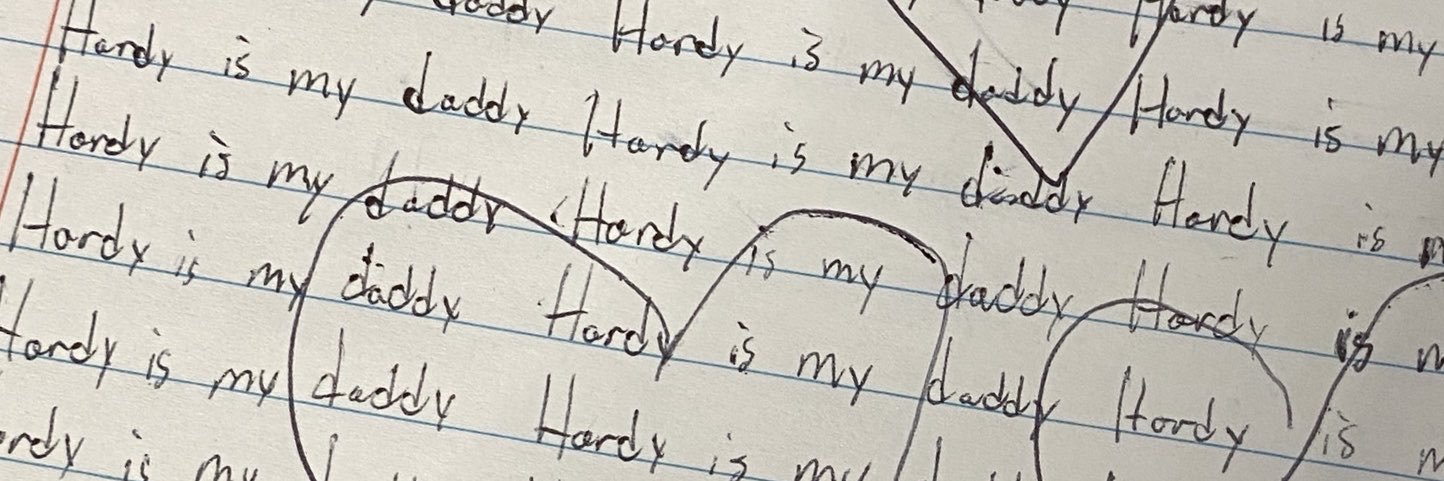 Hardy is my
daddy Hardy is my daddy Hardy is my
Hardy is my daddy Hardy is my daddy Hardy is
Hardy is my daddy Hardy is my daddy Hardy is
Hardy is my daddy Hardy is my daddy Hardy is
Hardy is my daddy Hardy is my
rdy is my